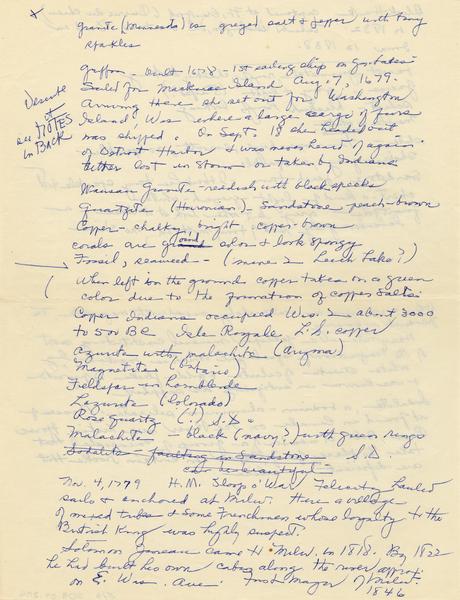 x
granite (Minnesota) is greyed salt & pepper with tiny
sparkles
Griffon - built 1678 - 1st sailing ship on Gr. Lakes.
Sailed for Mackinac Island Aug. 7, 1679.
Arriving there she set out for Washington
Island, Wis. where a large cargo of furs
was shipped. On Sept. 18 she headed out
of Detroit Harbor & was never heard of again.
Either lost in storm or taken by Indians
see NOTES
in Back
Wausau Granite - reddish with black specks
Quartzite (Huronian) - Sandstone peach-brown
Copper - chalky, bright copper-brown
corals are color & look spongy
Fossil, seaweed - (mine 2 Leech Lake?)
When left on the ground copper takes on a green
color due to the formation of copper salts.
Copper Indians occupied Wis. 2 about 3000
to 500 BC Isle Royale, L.S. copper
Azurite with malachite (Arizona)
Magnetite (Ontario)
Feldspar in Hornblende
Lazurite (Colorado)
Rose Quartz (!) S.D.
Malachite - black (navy?) with green rings
Sodalite - faulting in Sandstone S.D.
can be beautiful -
Nov. 4, 1779 H.M. Sloop o' War Felicity hauled
sails & anchored at Milw. Here a village
of mixed tribes & some Frenchmen whose loyalty to the
British King was highly suspect.
Solomon Juneau came to Milw. in 1818. By 1822
he had built his own cabin along the river approx.
on E. Wis. Ave. First Mayor of Milw.
1846